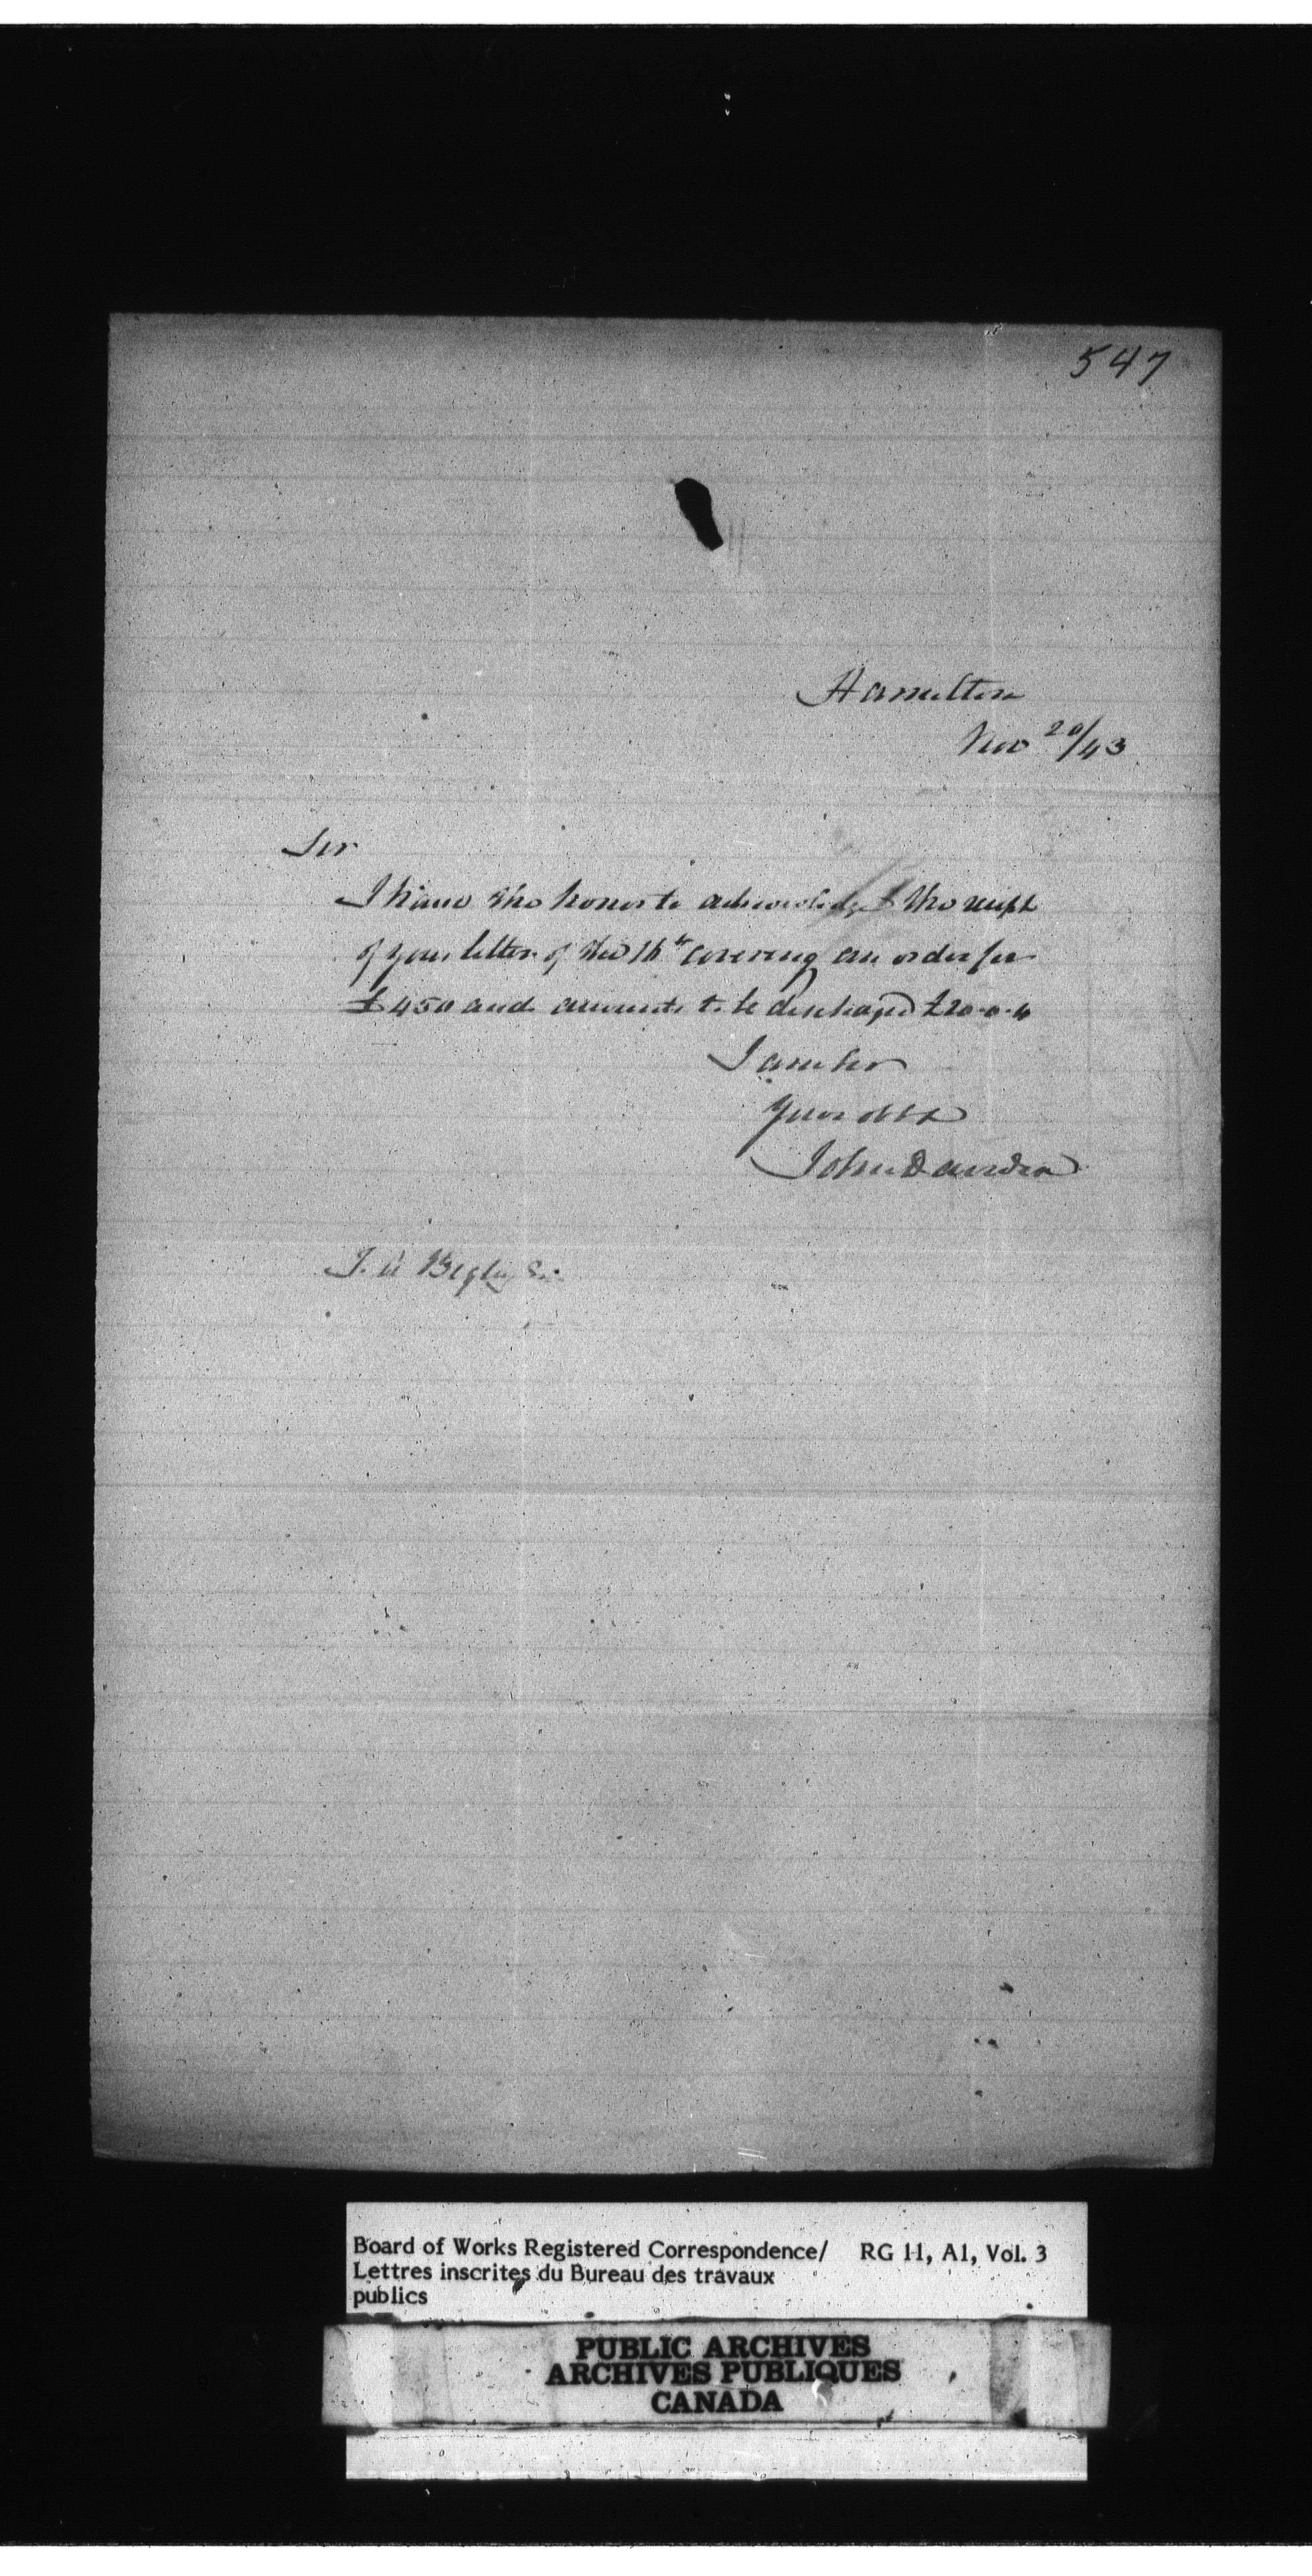 547
Hamilton
Nov 20/43
Sir
I have the honor to acknowledge the receipt
of your letter of the 16th covering an order for
£450 and accounts to be discharged £20-0-
I am Sir
Your obt
John
T. A Begly
Board of Works Registered Correspondence/ RG 11, A1, Vol. 3
Lettres inscrites du Bureau des travaux
publics
PUBLIC ARCHIVES
ARCHIVES PUBLIQUES
CANADA